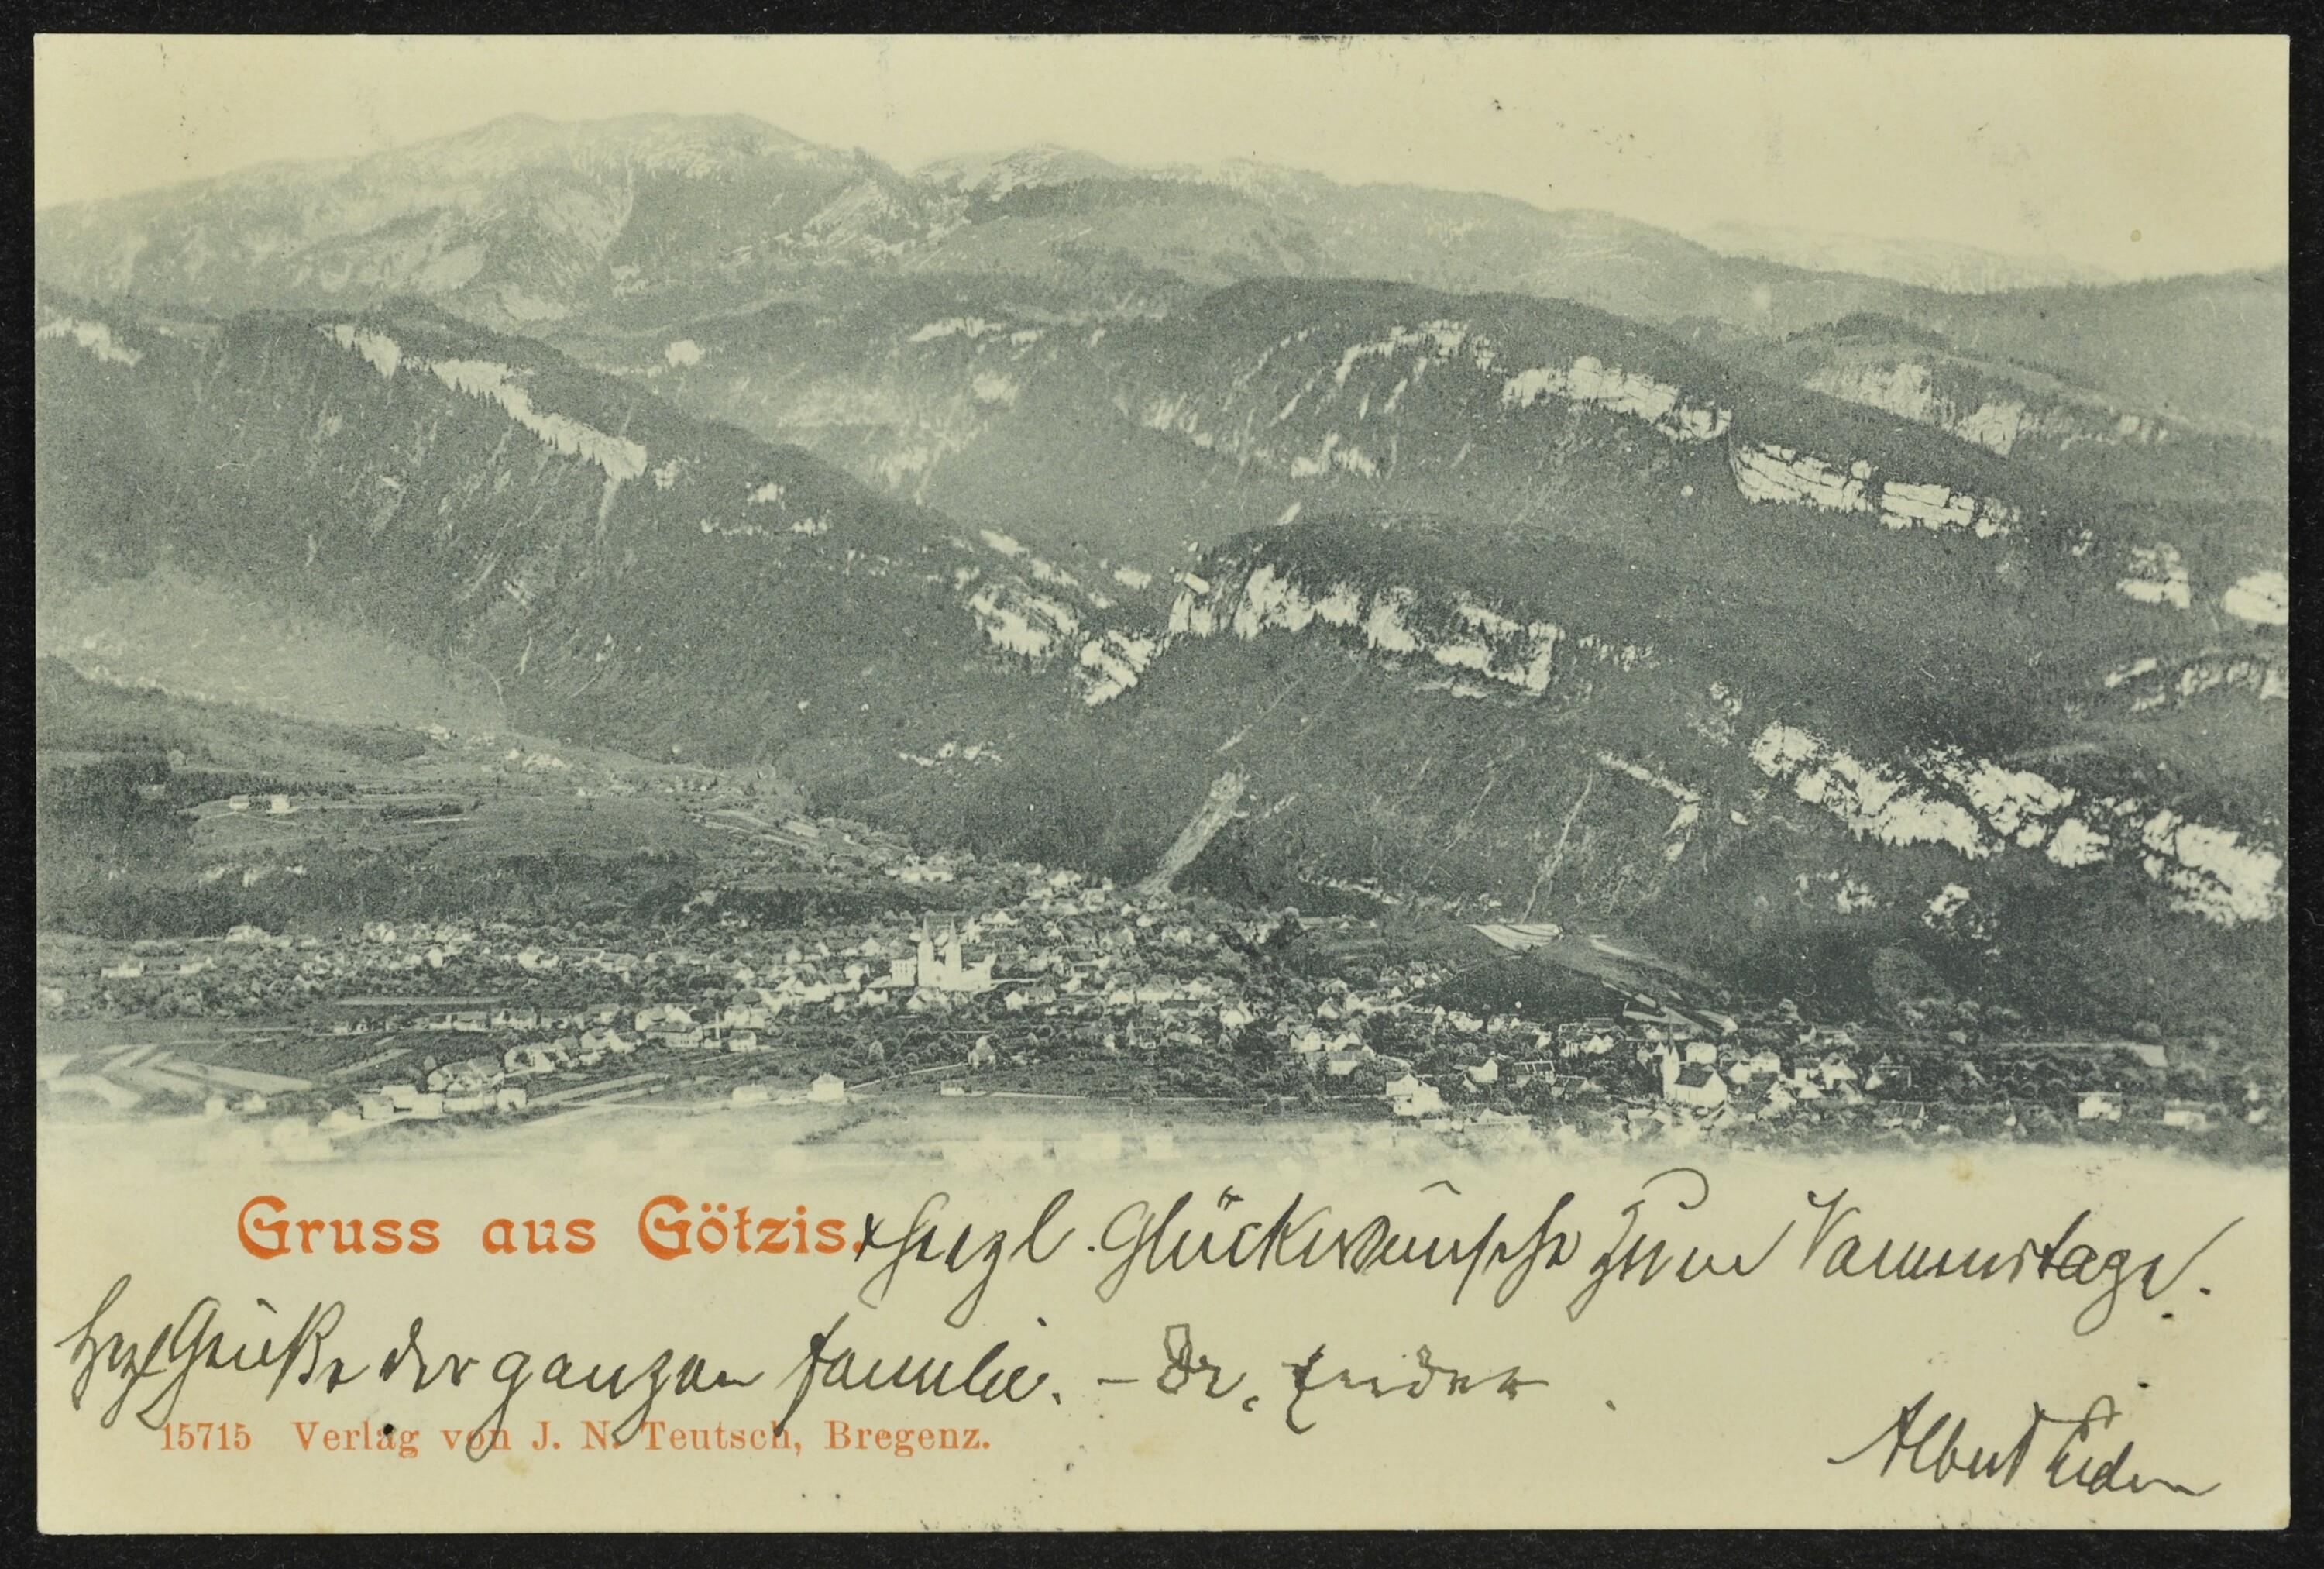 Gruss aus Götzis. + Herzl. Glückwünsche zum Namenstage.
Hzl Grüße der ganzen Familie. – Dr.
15715 Verlag von J. N. Teutsch, Bregenz.
Albert